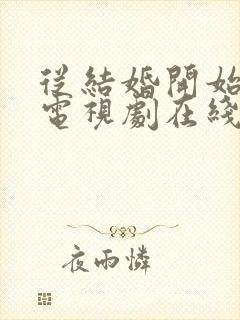 從結婚開始
電視劇在綫
夜雨憐